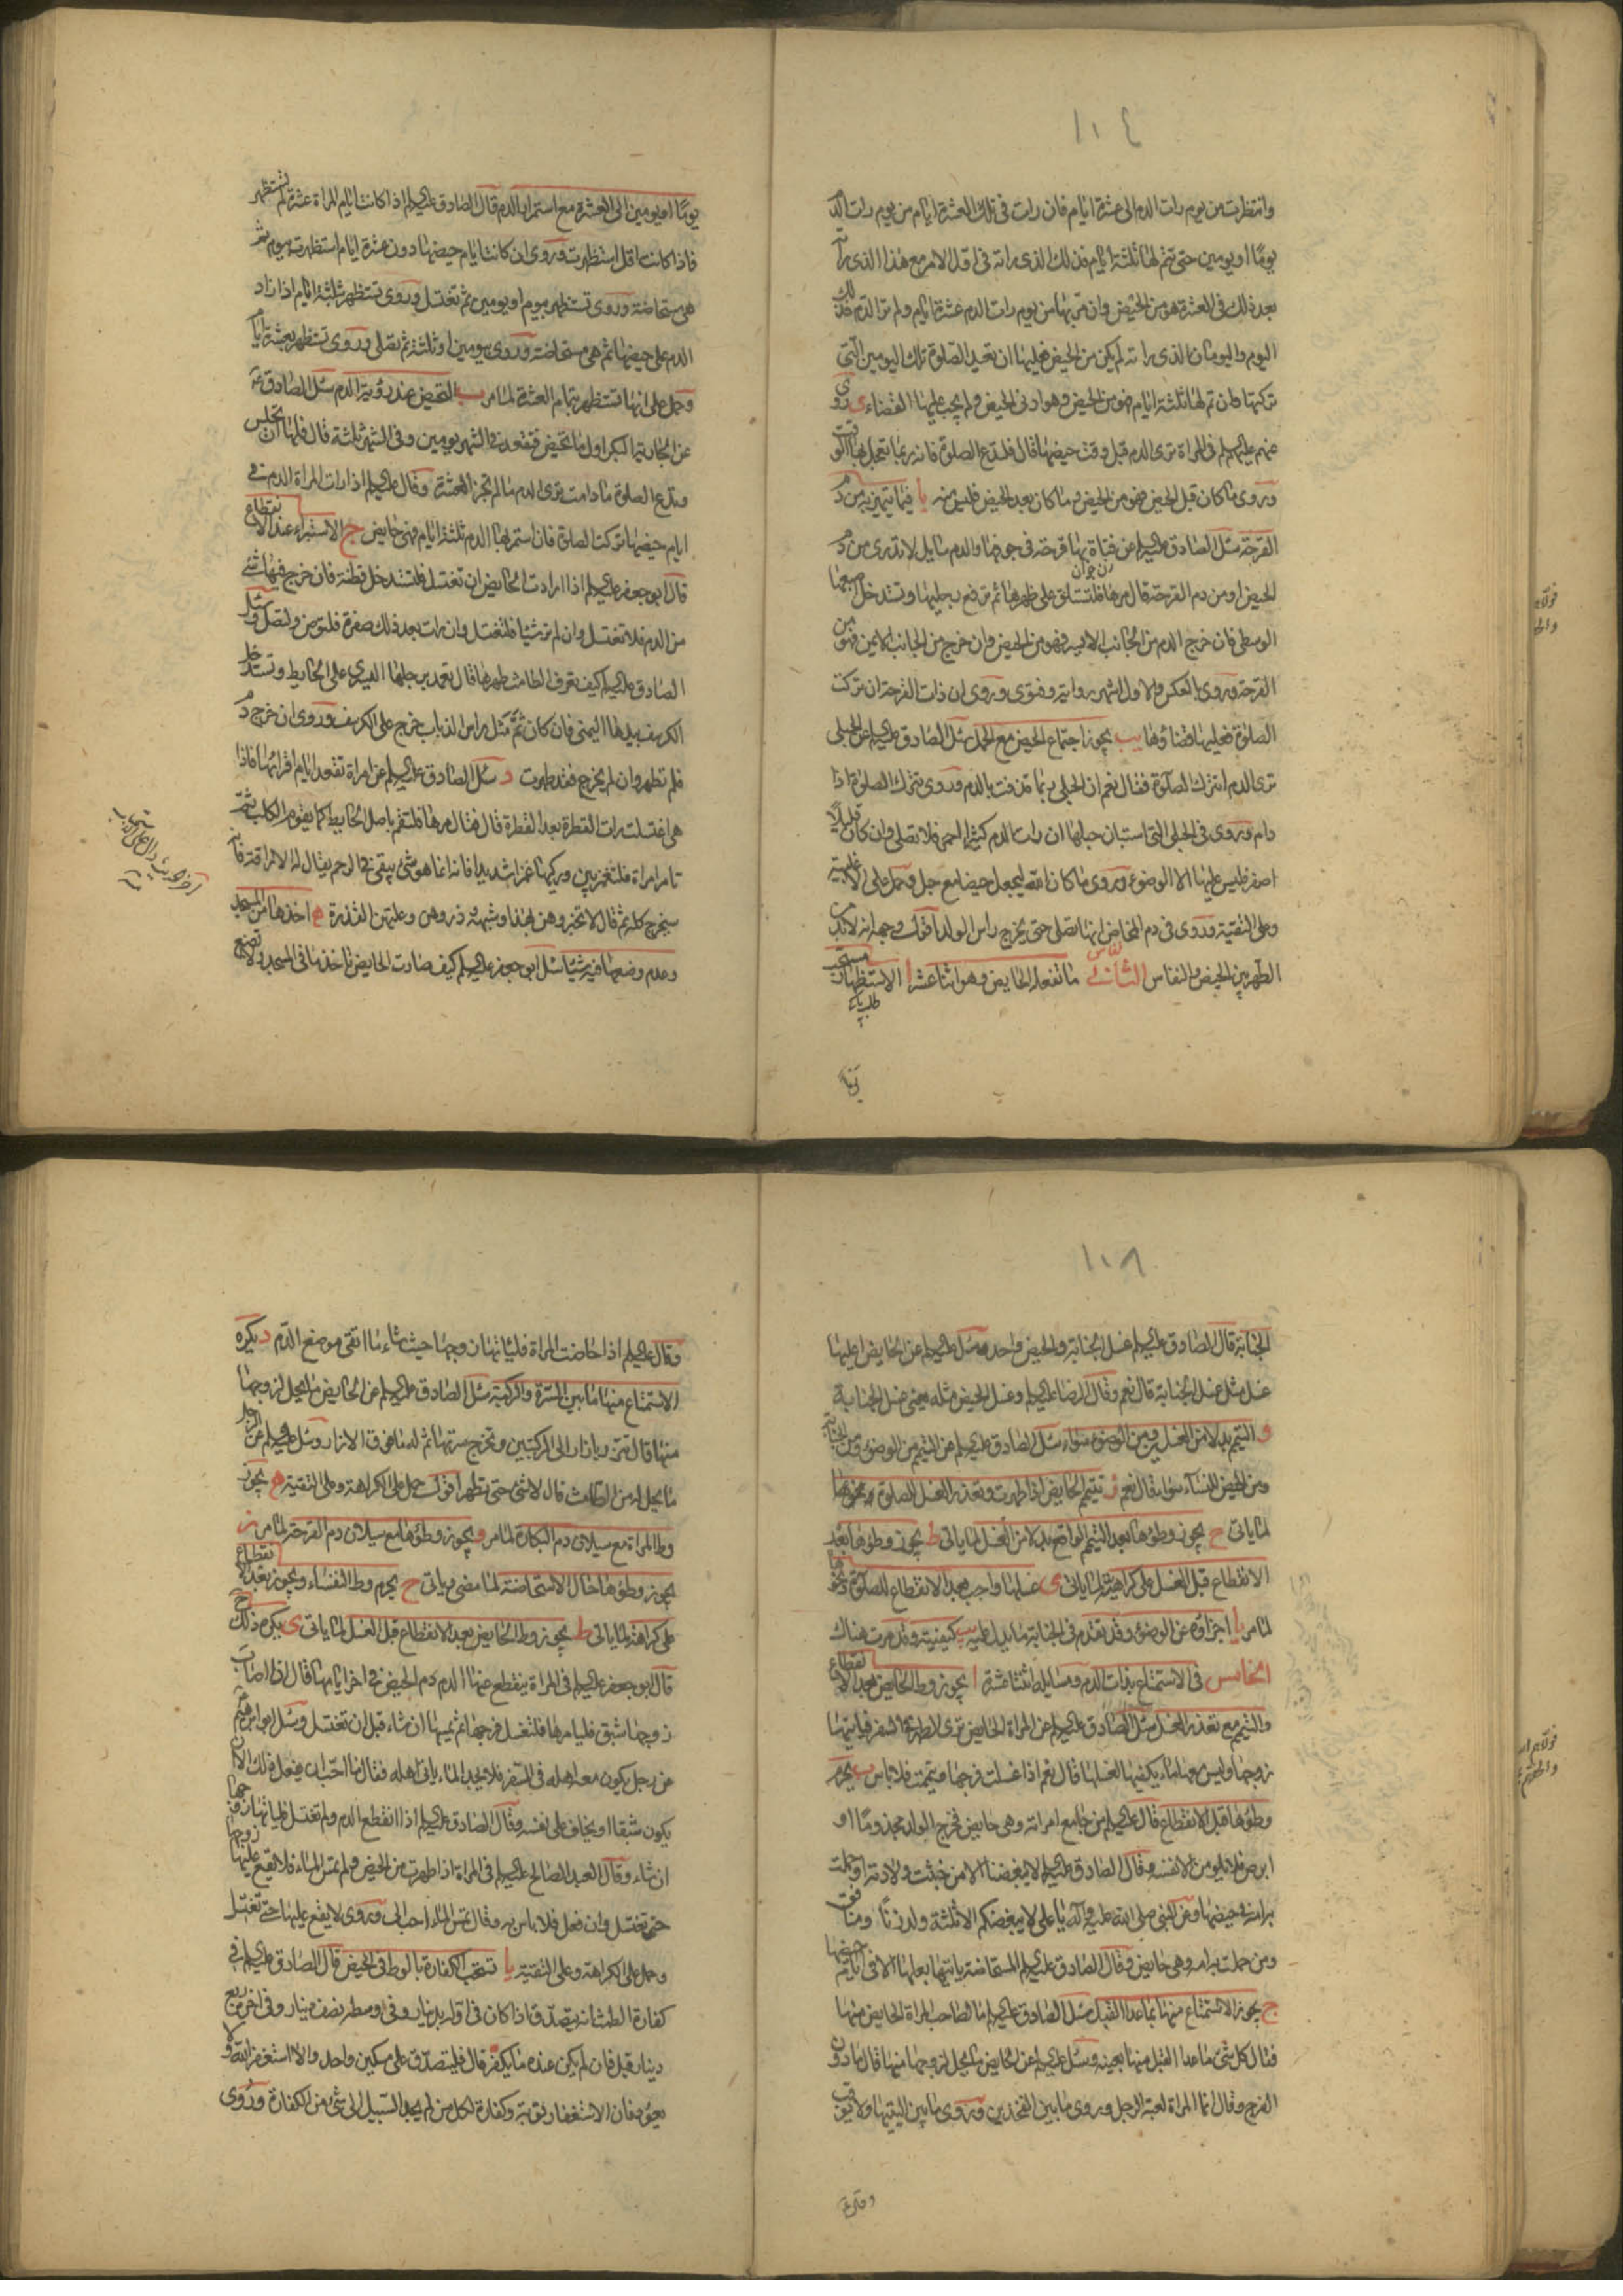 ١٠٤
وانتظرت من يوم رات الدم الى عشرة ايام فان رات فى تلك العشرة ايام من يوم رات الدم
يوما او يومين حتى يتم لها ثلثة ايام فذلك الذى راته فى اول الامر مع هذا الذى راته
بعد ذلك فى العشرة هو من الحيض وان مر بها من يوم رات الدم عشرة ايام ولم تر الدم فذلك
اليوم واليومان الذى راته لم يكن من الحيض فعليها ان تعيد الصلوة تلك اليومين التى
تركتها وان تم لها ثلثة ايام فهو من الحيض وهو ادنى الحيض ولم يجب عليها القضاء ى روى
عنهم عليهم السلم فى المراة ترى الدم قبل وقت حيضها قال فلتدع الصلوة فانه ربما تعجل بها الوقت
وروى ما كان قبل الحيض فهو من الحيض وما كان بعد الحيض فليس منه يا فيما يتميز به من دم
القرحة سئل الصادق عليه السلم عن فتاة بها قرحة فى جوفها والدم سايل لا تدرى من دم
الحيض او من دم القرحة قال مرها فلتستلق على ظهرها ثم ترفع رجليها وتستدخل اصبعها
الوسطى فان خرج الدم من الجانب الايسر فهو من الحيض وان خرج من الجانب الايمن فهو من
القرحة وروى العكس والاول اشهر رواية وفتوى وروى ان ذات القرحة ان تركت
الصلوة فعليها قضاؤها يب يجوز اجتماع الحيض مع الحمل سئل الصادق عليه السلم عن الحبلى
ترى الدم اتترك الصلوة فقال نعم ان الحبلى ربما قذفت بالدم وروى تترك الصلوة اذا
دام وروى فى الحبلى التى استبان حبلها ان رات الدم كثيرا احمر فلا تصلى وان كان قليلا
اصفر فليس عليها الا الوضوء وروى ما كان الله ليجعل حيضا مع حبل وحمل على الاغلبية
وعلى التقية وروى فى دم المخاض انها تصلى حتى يخرج راس الولد اقول وجهه انه لا بد من
الطهر بين الحيض والنفاس الثانى ما تفعله الحايض وهو اثنا عشر ا الاستظهار مستحب
يوما او يومين الى العشرة مع استمرار الدم قال الصادق عليه السلم اذا كانت ايام المراة عشرة لم تستظهر
فاذا كانت اقل استظهرت وروى ان كانت ايام حيضها دون عشرة ايام استظهرت بيوم ثم
هى مستحاضة وروى تستظهر بيوم او يومين ثم تغتسل وروى تستظهر ثلثة ايام اذا زاد
الدم على حيضها ثم هى مستحاضة وروى بيومين او ثلثة ثم تصلى وروى تستظهر بعشرة ايام
وحمل على انها تستظهر بتمام العشرة لما مر ب التحيض عند رؤية الدم سئل الصادق عليه السلم
عن الجارية البكر اول ما تحيض فتقعد فى الشهر يومين وفى الشهر ثلثة قال فلها ان تجلس
وتدع الصلوة ما دامت ترى الدم ما لم تجز العشرة وقال عليه السلم اذا رات المراة الدم فى
ايام حيضها تركت الصلوة فان استمر بها الدم ثلثة ايام فهى حايض ج الاستبراء عند الانقطاع
قال ابو جعفر عليه السلم اذا ارادت الحايض ان تغتسل فلتستدخل قطنة فان خرج فيها شئ
من الدم فلا تغتسل وان لم تر شيئا فلتغتسل وان رات بعد ذلك صفرة فلتوض ولتصل وسئل
الصادق عليه السلم كيف تعرف الطامث طهرها قال تعمد برجلها اليسرى على الحايط وتستدخل
الكرسف بيدها اليمنى فان كان ثم مثل راس الذباب خرج على الكرسف وروى ان خرج دم
فلم تطهر وان لم يخرج فقد طهرت د سئل الصادق عليه السلم عن امراة تقعد ايام اقرائها فاذا
هى اغتسلت رات القطرة بعد القطرة قال فقال مرها فلتقم باصل الحايط كما يقوم الكلب ثم
تامر امراة فلتغمز بين وركيها غمزا شديدا فانه انما هو شئ يبقى فى الرحم يقال له الاراقة فانه
سيخرج كله ثم قال لا تخبروهن بهذا وشبهه ذروهن وعلتهن القذرة ه اخذها من المسجد
وعدم وضعها فيه شيئا سئل ابو جعفر عليه السلم كيف صارت الحايض تاخذ ما فى المسجد ولا تضع
١٠٨
الجنابة قال الصادق عليه السلم غسل الجنابة والحيض واحد ه سئل عليه السلم عن الحايض اعليها
غسل مثل غسل الجنابة قال نعم وقال الرضا عليه السلم وغسل الحيض مثله يعنى غسل الجنابة
و التيمم بدلا من الغسل وبين الوضوء سواء سئل الصادق عليه السلم عن التيمم من الوضوء ومن الجنابة
ومن الحيض للنساء سواء فقال نعم ز تتيمم الحايض اذا طهرت وتعذر الغسل للصلوة ونحوها
لما ياتى ح يجوز وطؤها بعد التيمم الواقع بدلا من الغسل لما ياتى ط يجوز وطؤها بعد
الانقطاع قبل الغسل على كراهية لما ياتى ى غسلها واجب بعد الانقطاع للصلوة ونحوها
لما مر يا اجزاؤه عن الوضوء وقد تقدم فى الجنابة ما يدل عليه يب كيفيته وقد مرت هناك
الخامس فى الاستمتاع بذات الدم ومسايله اثنتا عشرة ا يجوز وطء الحايض بعد الانقطاع
والتيمم مع تعذر الغسل سئل الصادق عليه السلم عن المراة الحايض ترى الطهر فى السفر فياتيها
زوجها وليس معها ماء يكفيها لغسلها قال نعم اذا غسلت فرجها وتيممت فلا باس ب يحرم
وطؤها قبل الانقطاع قال عليه السلم من جامع امراته وهى حايض فخرج الولد مجذوما او
ابرص فلا يلومن الا نفسه وقال الصادق عليه السلم لا يبغضنا الا من خبثت ولادته او حملت
به امه فى حيضها وعن النبى صلى الله عليه وآله يا على لا يبغضكم الا ثلثة ولد زنا ومنافق
ومن حملت به امه وهى حايض وقال الصادق عليه السلم المستحاضة ياتيها بعلها الا فى ايام حيضها
ج يجوز الاستمتاع منها بما عدا القبل سئل الصادق عليه السلم ما لصاحب المراة الحايض منها
فقال كل شئ ما عدا القبل منها بعينه وسئل عليه السلم عن الحايض ما يحل لزوجها منها قال ما دون
الفرج وقال انما المراة لعبة الرجل وروى ما بين الفخذين وروى ما بين اليتيها ولا يوقب
وقال عليه السلم اذا حاضت المراة فلياتها زوجها حيث شاء ما اتقى موضع الدم د يكره
الاستمتاع منها ما بين السرة والركبة سئل الصادق عليه السلم عن الحايض ما يحل لزوجها
منها قال تتزر بازار الى الركبتين وتخرج سرتها ثم له ما فوق الازار وسئل عليه السلم عن الرجل
ما يحل له من الطامث قال لا شئ حتى تطهر اقول حمل على الكراهة وعلى التقية ه يجوز
وطء المراة مع سيلان دم البكارة لما مر و يجوز وطؤها مع سيلان دم القرحة لما مر ز
يجوز وطؤها حال الاستحاضة لما مضى وياتى ح يحرم وطء النفساء ويجوز بعد الانقطاع
على كراهة لما ياتى ط يجوز وطء الحايض بعد الانقطاع قبل الغسل لما ياتى ى يكره ذلك
قال ابو جعفر عليه السلم فى المراة ينقطع عنها الدم دم الحيض فى اخر ايامها قال اذا اصاب
زوجها شبق فليامرها فلتغسل فرجها ثم يمسها ان شاء قبل ان تغتسل وسئل ابو ابرهيم
عن رجل يكون معه اهله فى السفر فلا يجد الماء ياتى اهله فقال ما احب ان يفعل ذلك الا ان
يكون شبقا او يخاف على نفسه وقال الصادق عليه السلم اذا انقطع الدم ولم تغتسل فلياتها زوجها
ان شاء وقال العبد الصالح عليه السلم فى المراة اذا طهرت من الحيض ولم تمس الماء فلا يقع عليها زوجها
حتى تغتسل وان فعل فلا باس به وقال تمس الماء احب الى وروى لا يقع عليها حتى تغتسل
وحمل على الكراهة وعلى التقية يا تستحب الكفارة بالوطء فى الحيض قال الصادق عليه السلم فى
كفارة الطمث انه يتصدق اذا كان فى اوله بدينار وفى اوسطه نصف دينار وفى اخره ربع
دينار قيل فان لم يكن عنده ما يكفر قال فليتصدق على مسكين واحد والا استغفر الله ولا
يعود فان الاستغفار توبة وكفارة لكل من لم يجد السبيل الى شئ من الكفارة وروى